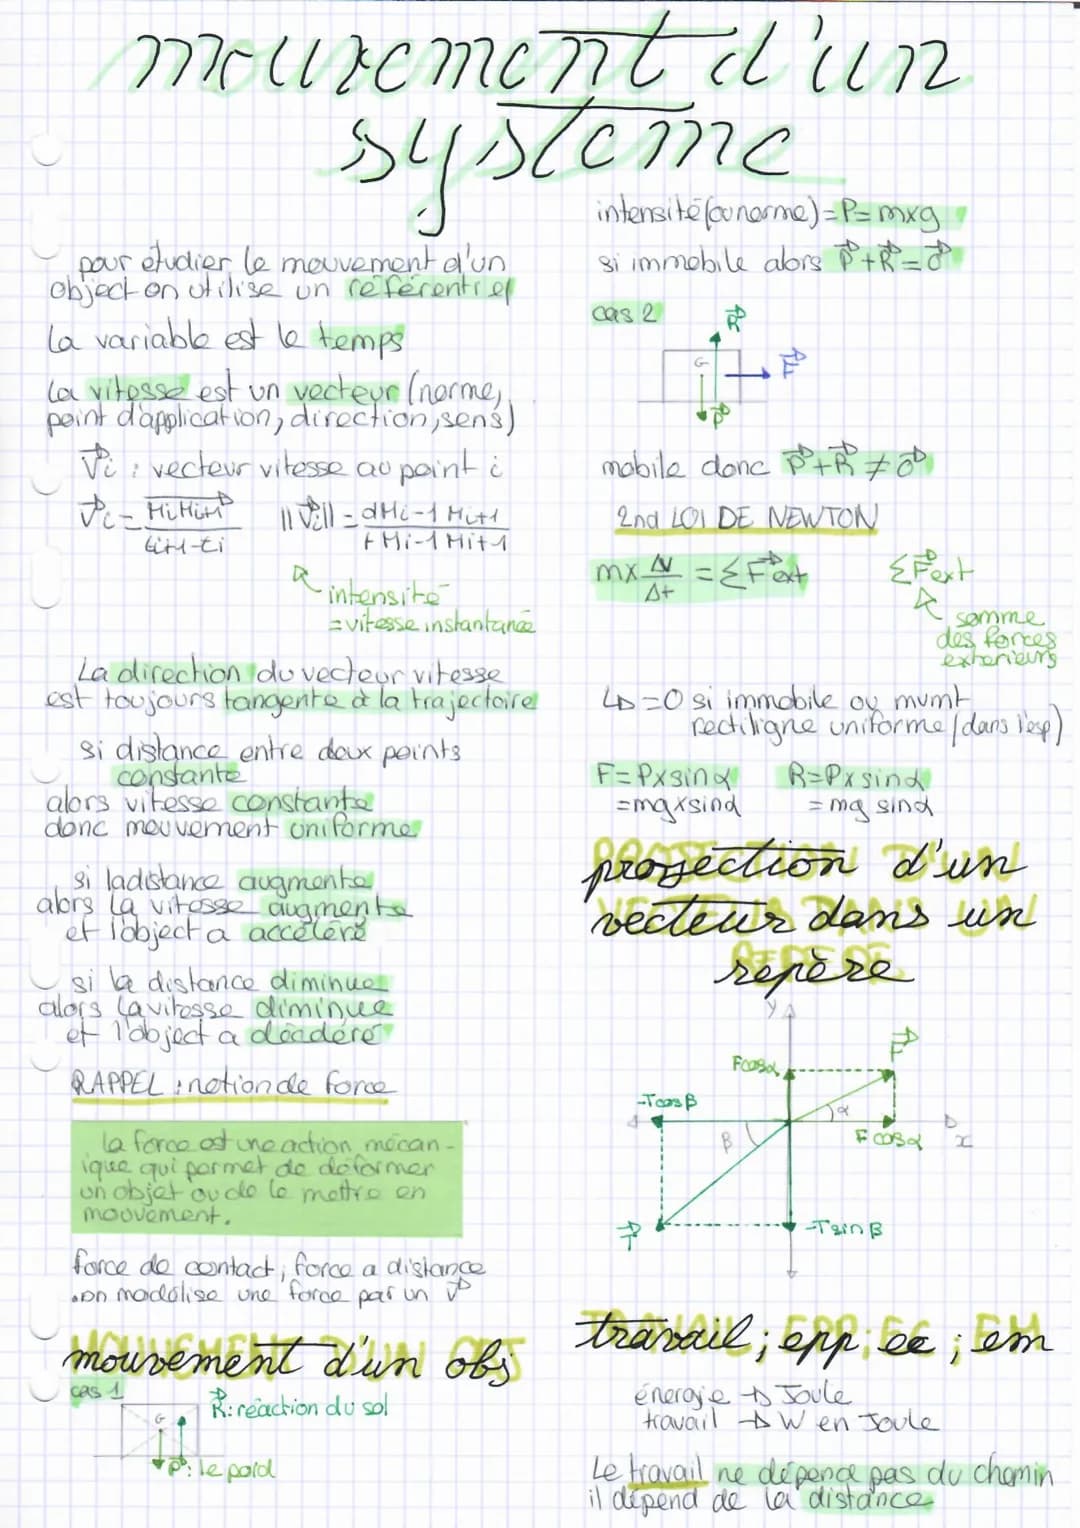 mouvement d'un
système
pour étudier le mouvement d'un
object on utilise un référentiel
La variable est le temps
La vitesse est un vecteur (norme,
point d'application, direction, sens)
V⃗i : vecteur vitesse au point i
V⃗i = MiMi+1 / ti+1-ti ||V⃗i|| = dMi-1 Mi+1 / tMi-1 Mi+1
intensité
= vitesse instantanée
La direction du vecteur vitesse
est toujours tangente à la trajectoire
si distance entre deux points
constante
alors vitesse constante
donc mouvement uniforme
si la distance augmente
alors la vitesse augmente
et l'object a accéléré
si la distance diminue
alors la vitesse diminue
et l'object a décéléré
RAPPEL : notion de force
la force est une action mécan-
ique qui permet de déformer
un objet ou de le mettre en
mouvement.
force de contact, force a distance
.on modélise une force par un v⃗
MOUVEMENT D'UN OBJ
mouvement d'un obj
cas 1
G
R⃗: réaction du sol
P⃗: le poid
intensité (ou norme) = P = mxg
si immobile alors P⃗+R⃗=0⃗
cas 2
R⃗
G
F⃗
P⃗
mobile donc P⃗+R⃗≠0⃗
2nd LOI DE NEWTON
mx ΔV/Δt = ΣF⃗ext
ΣF⃗ext
somme
des forces
exterieurs
↳ =0 si immobile ou mvmt
rectiligne uniforme (dans l'esp)
F=Pxsinα R=Pxsinα
=mgxsinα = mg sinα
PROJECTION D'UN
VECTEUR DANS UN
REPERE
projection d'un
vecteur dans un
repère
y
F⃗
Fcosα
-Tcosβ
α
β
F cosα
x
T⃗
-Tsinβ
TRAVAIL; EPP; EC; EM
travail; epp; ec; em
énergie → Joule
travail → W en Joule
Le travail ne dépend pas du chemin
il dépend de la distance